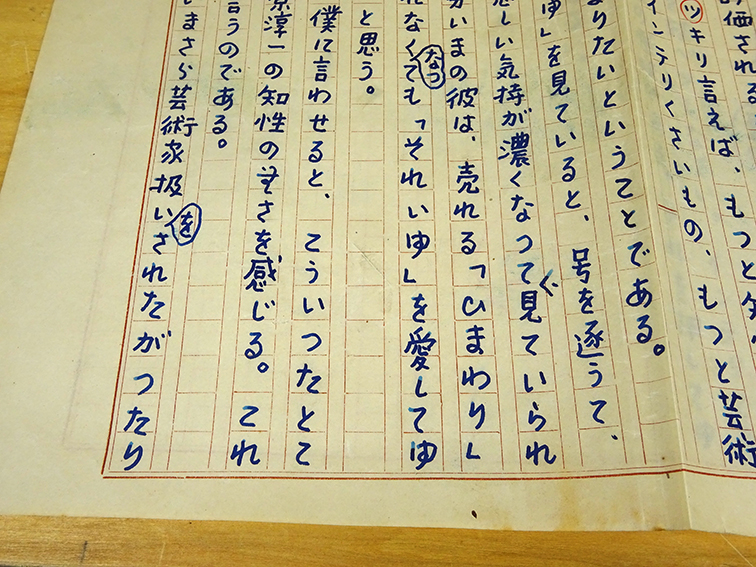 評価される
ツキリ言えば、もつと知
インテリくさいもの、もつと芸術
なりたいということである。
ゆ」を見ていると、号を逐うて、
悲しい気持が濃くなつて見ていられ
いまの彼は、売れる「ひまわり」
れなくなつても「それいゆ」を愛してゆ
と思う。
僕に言わせると、こういつたとこ
原淳一の知性のさを感じる。これ
言うのである。
いまさら芸術家扱いをされたがつたり